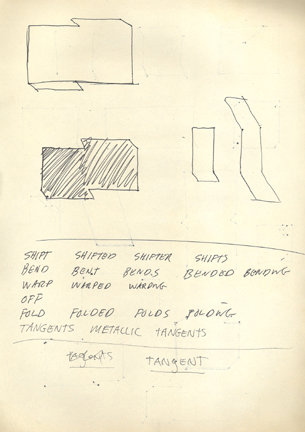 SHIFT SHIFTED SHIFTER SHIFTS
BEND BENT BENDS BENDED BENDING
WARP WARPED WARPING
OFF
FOLD FOLDED FOLDS FOLDING
TANGENTS METALLIC TANGENTS
tangents TANGENT